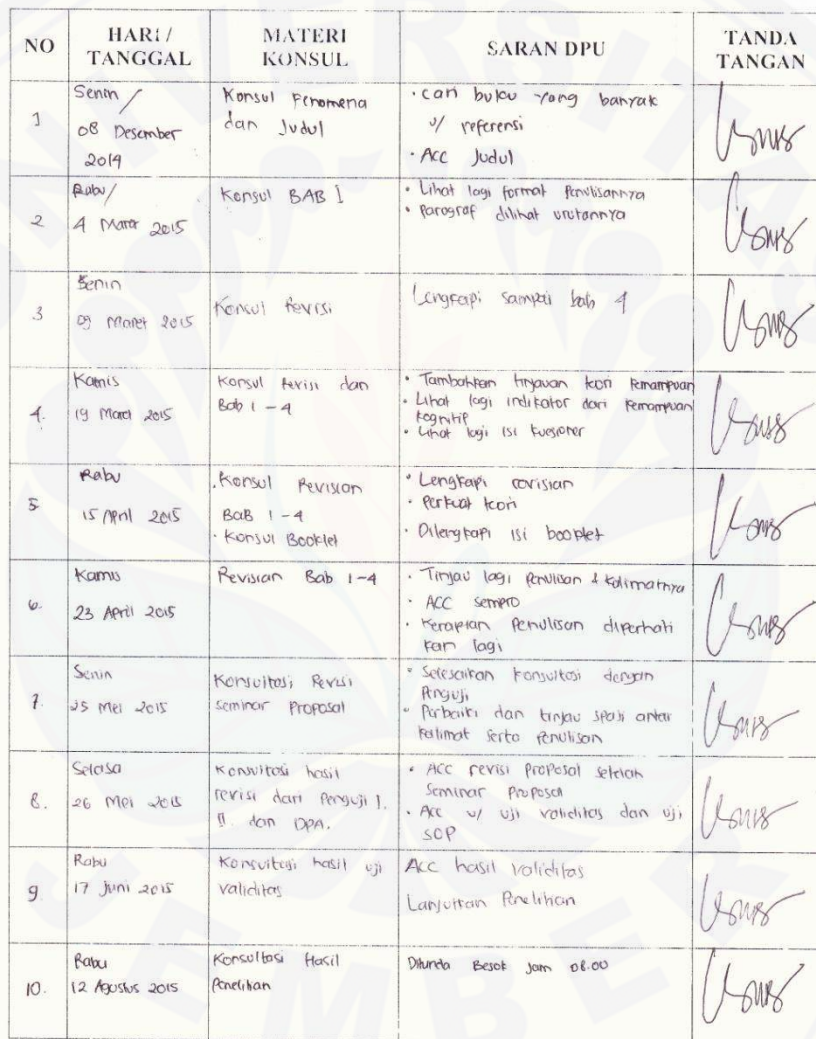 NO
HARI /
TANGGAL
MATERI
KONSUL
SARAN DPU
TANDA
TANGAN
1
Senin /
08 Desember
2014
Konsul Fenomena
dan Judul
· cari buku yang banyak
u/ referensi
· Acc Judul
2
Rabu/
4 Maret 2015
Konsul BAB I
• Lihat lagi format penulisannya
• Paragraf dilihat urutannya
3
Senin
09 Maret 2015
Konsul Revisi
Lengkapi sampai bab 4
4.
Kamis
19 Maret 2015
Konsul Revisi dan
Bab 1 - 4
• Tambahkan tinjauan teori kemampuan
• Lihat lagi indikator dari kemampuan
kognitif
• Lihat lagi isi kuesioner
5.
Rabu
15 April 2015
. Konsul Revisian
BAB 1 - 4
· Konsul Booklet
• Lengkapi revisian
• Perkuat teori
• Dilengkapi isi booklet
6.
Kamis
23 April 2015
Revisian Bab 1-4
· Tinjau lagi penulisan & kalimatnya
• ACC sempro
• Kerapian penulisan diperhati
kan lagi
7.
Senin
25 Mei 2015
Konsultasi Revisi
seminar Proposal
• Selesaikan konsultasi dengan
Penguji
• Perbaiki dan tinjau spasi antar
kalimat serta penulisan
8.
Selasa
26 Mei 2015
Konsultasi hasil
revisi dari Penguji I.
II. dan DPA.
• ACC revisi Proposal setelah
Seminar Proposal
• Acc u/ uji validitas dan uji
SOP
9
Rabu
17 Juni 2015
Konsultasi hasil uji
validitas
Acc hasil validitas
Lanjutkan Penelitian
10.
Rabu
12 Agustus 2015
Konsultasi Hasil
Penelitian
Ditunda Besok Jam 08.00